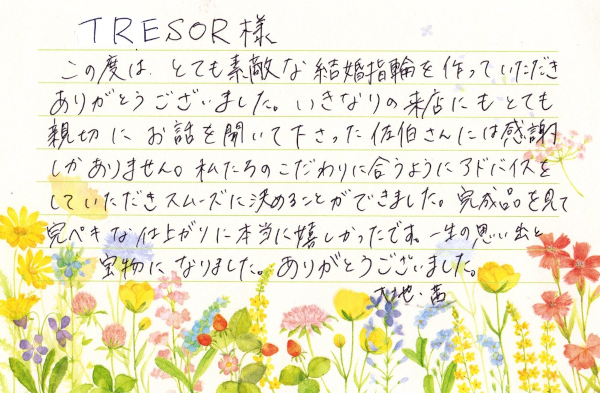 TRESOR様
この度は、とても素敵な結婚指輪を作っていただき
ありがとうございました。いきなりの来店にもとても
親切にお話を聞いて下さった佐伯さんには感謝
しかありません。私たちのこだわりに合うようにアドバイスを
していただきスムーズに決めることができました。完成品を見て
完ペキな仕上がりに本当に嬉しかったです。一生の思い出と
宝物になりました。ありがとうございました。